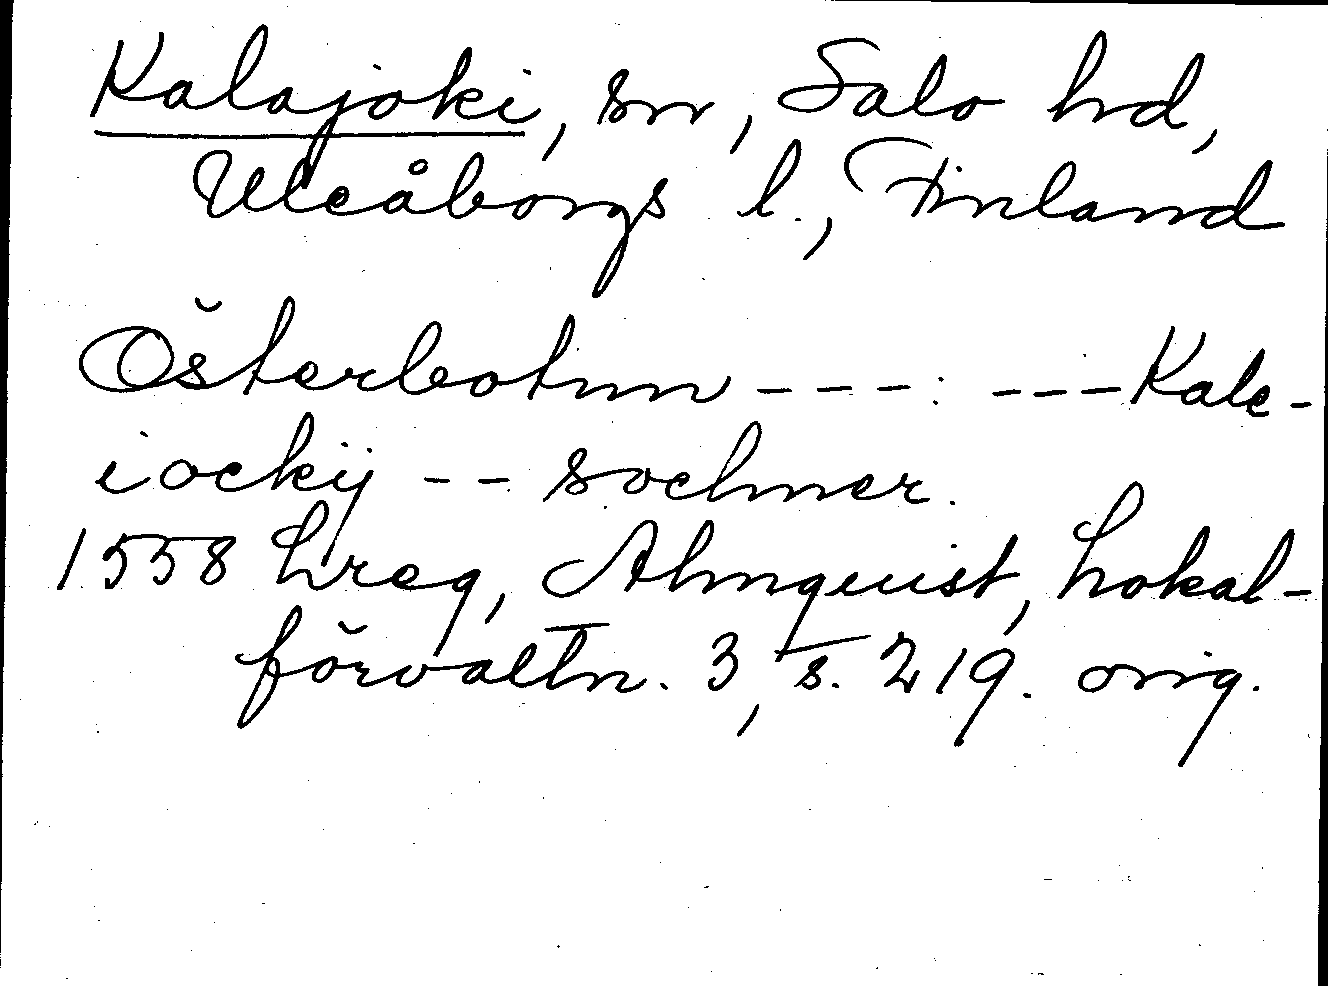 Kalajoki, sn, Salo hd,
Uleåborgs l., Finland
Österbotnn ---: --- Kale-
iockij -- sochner.
1558 Lreg, Almquist, Lokal-
förvaltn. 3, s. 219. orig.